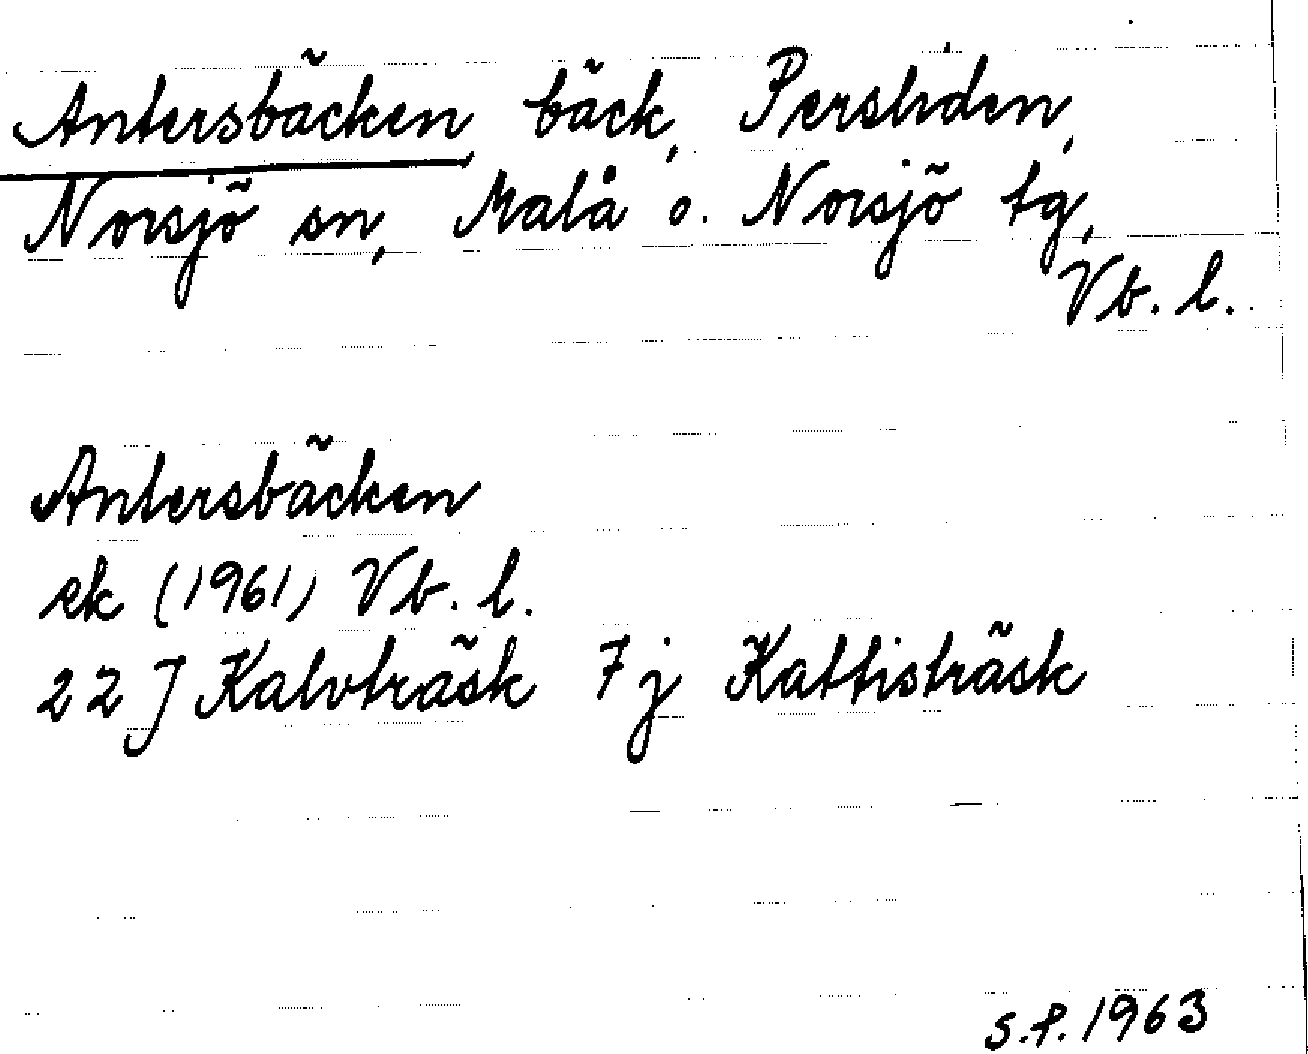 Antersbäcken, bäck, Persliden,
Norsjö sn, Malå o. Norsjö tg,
Vb. l.
Antersbäcken
ek (1961) Vb. l.
22 J Kalvträsk 7 j Kattisträsk
S.P. 1963